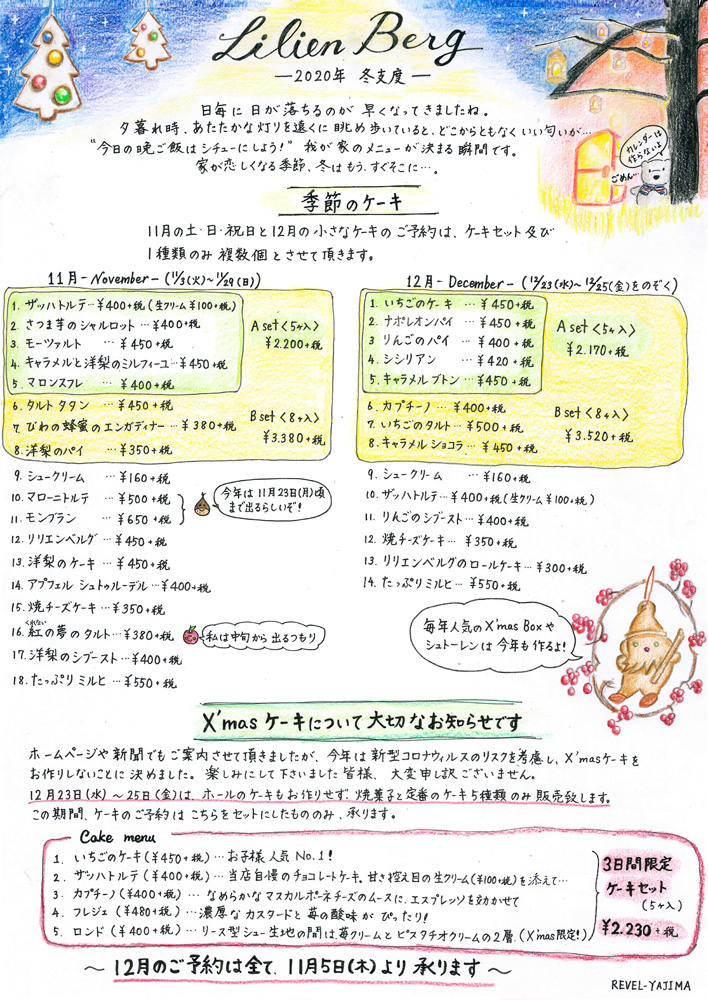 Lilien Berg
—2020年 冬支度—
日毎に日が落ちるのが 早くなってきましたね。
夕暮れ時、あたたかな灯りを遠くに眺め歩いていると、どこからともなく いい匂いが…
"今日の晩ご飯は シチューにしよう!" 我が家のメニューが決まる瞬間です。
家が恋しくなる季節、冬はもう、すぐそこに…。
カレンダーは
作らないよ
ごめん…
季節のケーキ
11月の土・日・祝日と12月の小さなケーキの ご予約は、ケーキセット及び
1種類のみ 複数個とさせて頂きます。
11月 - November - (11/3(火)〜11/29(日))
1. ザッハトルテ…¥400+税 (生クリーム¥100+税)
2. さつま芋のシャルロット…¥400+税
3. モーツァルト …¥450+税
4. キャラメルと洋梨のミルフィーユ…¥450+税
5. マロンスフレ …¥400+税
A set <5ヶ入>
¥2.200+税
6. タルト タタン …¥450+税
7. びわの蜂蜜のエンガディナー…¥380+税
8. 洋梨のパイ …¥350+税
B set <8ヶ入>
¥3.380+税
9. シュークリーム …¥160+税
10. マローニトルテ …¥500+税
11. モンブラン …¥650+税
今年は11月23日(月)頃
まで出るらしいぞ!
12. リリエンベルグ …¥450+税
13. 洋梨のケーキ …¥450+税
14. アプフェル シュトゥルーデル…¥400+税
15. 焼チーズケーキ…¥350+税
16. 紅の夢のタルト…¥380+税
くれない
私は中旬から出るつもり
17. 洋梨のシブースト…¥400+税
18. たっぷりミルヒ …¥550+税
12月 - December - (12/23(水)〜12/25(金)をのぞく)
1. いちごのケーキ …¥450+税
2. ナポレオンパイ …¥450+税
3. りんごのパイ …¥400+税
4. シシリアン …¥420+税
5. キャラメルブトン…¥450+税
A set <5ヶ入>
¥2.170+税
6. カプチーノ …¥400+税
7. いちごのタルト…¥500+税
8. キャラメル ショコラ …¥450+税
B set <8ヶ入>
¥3.520+税
9. シュークリーム …¥160+税
10. ザッハトルテ…¥400+税 (生クリーム¥100+税)
11. りんごのシブースト…¥400+税
12. 焼チーズケーキ…¥350+税
13. リリエンベルグのロールケーキ…¥300+税
14. たっぷりミルヒ…¥550+税
毎年人気のX'mas Boxや
シュトーレンは今年も作るよ!
X'masケーキについて大切なお知らせです
ホームページや新聞でもご案内させて頂きましたが、今年は新型コロナウィルスのリスクを考慮し、X'masケーキを
お作りしないことに決めました。楽しみにして下さいました皆様、大変申し訳ございません。
12月23日(水)〜25日(金)は、ホールのケーキもお作りせず、焼菓子と定番のケーキ5種類のみ販売致します。
この期間、ケーキのご予約はこちらをセットにしたもののみ、承ります。
Cake menu
1. いちごのケーキ(¥450+税)…お子様人気No.1!
2. ザッハトルテ(¥400+税)…当店自慢のチョコレートケーキ。甘さ控え目の生クリーム(¥100+税)を添えて…
3. カプチーノ(¥400+税) …なめらかなマスカルポーネチーズのムースに、エスプレッソを効かせて
4. フレジェ(¥480+税)…濃厚なカスタードと苺の酸味がぴったり!
5. ロンド(¥400+税)…リース型シュー生地の間は苺クリームとピスタチオクリームの2層。(X'mas限定!)
3日間限定
ケーキセット
(5ヶ入)
¥2.230+税
〜12月のご予約は全て、11月5日(木)より承ります〜
REVEL-YAJIMA